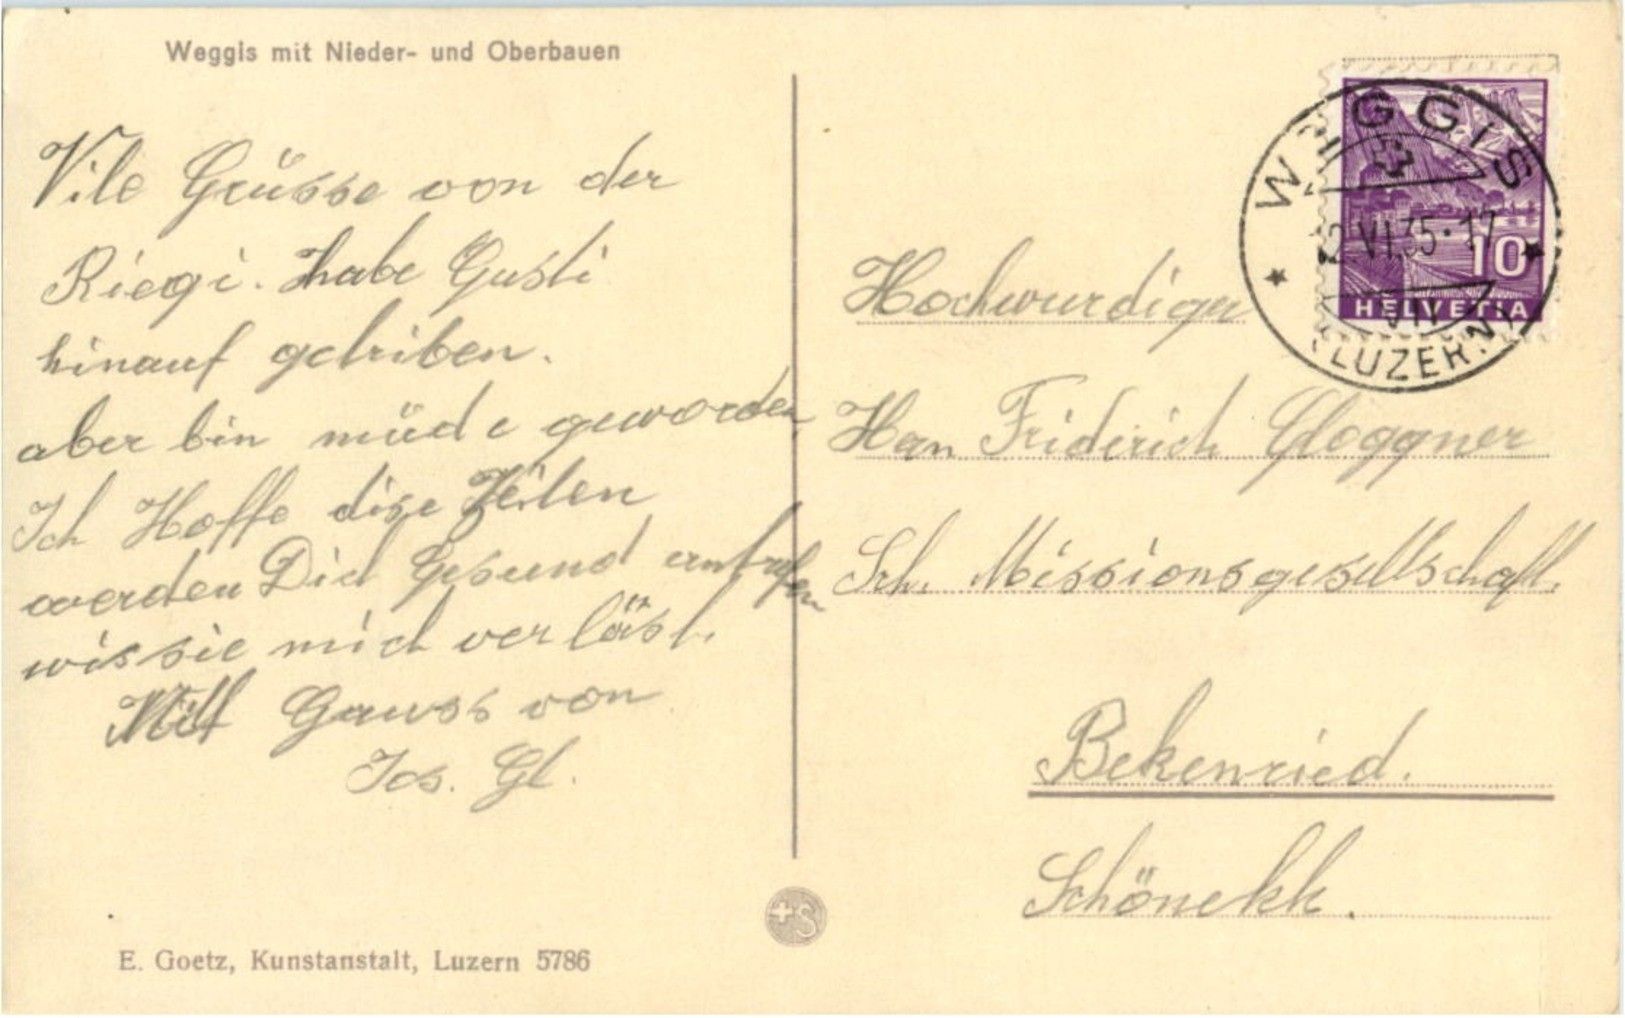 Weggis mit Nieder- und Oberbauen
Vile Grüsse von der
Riegi. habe Gusti
hinauf getriben.
aber bin müde geworden
Ich Hoffe dise Zeilen
werden Dich Gesund antrefen
wis sie mich verläst.
Mit Gruss von
Jos. Gl.
E. Goetz, Kunstanstalt, Luzern 5786
+S
WEGGIS
2.VI.35.-17
VII
(LUZERN)
10
HELVETIA
Hochwurdigen
Herrn Friderich Gloggner
Sch. Missionsgesellschaft.
Bekenried.
Schönekk.